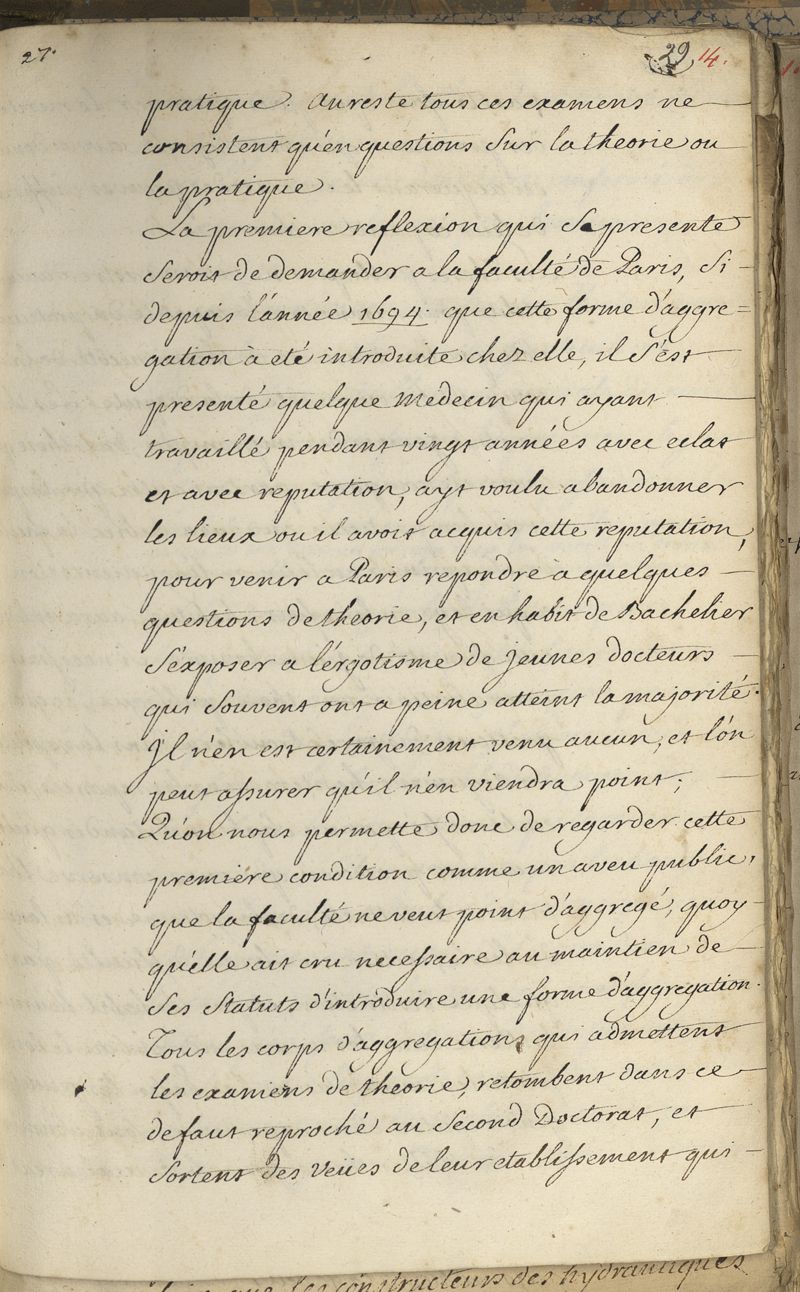 27.
29 14.
pratique. Au reste tous ces examens ne
consistent qu'en questions sur la theorie ou
la pratique.
La premiere reflexion qui se presente
seroit de demander a la faculté de Paris, si
depuis l'année 1694. que cette forme d'aggre=
gation à eté introduite chez elle, il s'est
presenté quelque medecin qui ayant
travaillé pendant vingt années avec eclat
et avec reputation, ayt voulu abandonner
les lieux ou il avoit acquis cette reputation,
pour venir a Paris repondre à quelques
questions de theorie, et en habit de Bachelier
s'exposer a l'ergotisme de jeunes docteurs
qui souvent ont a peine atteint la majorité.
Jl n'en est certainement venu aucun, et l'on
peut assurer qu'il n'en viendra point;
Qu'on nous permette donc de regarder cette
premiere condition comme un aveu public,
que la faculté ne veut point d'aggregé, quoy
qu'elle ait cru necessaire au maintien de
ses statuts d'introduire une forme d'aggregation.
Tous les corps d'aggregations qui admettent
les examens de theorie, retombent dans ce
defaut reproché au second Doctorat, et
sortent des veües de leur etablissement qui
les constructeurs des hydrauliques